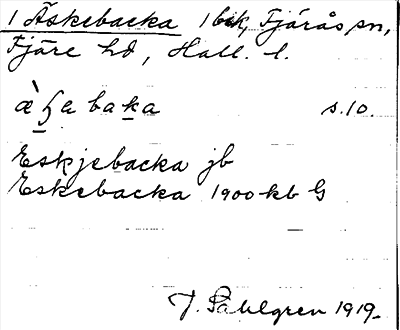 1 Äskebacka 1 bek, Fjärås sn,
Fjäre hd, Hall. l.
s.10.
Eskjebacka jb
Eskebacka 1900 kb G
J. Sahlgren 1919.